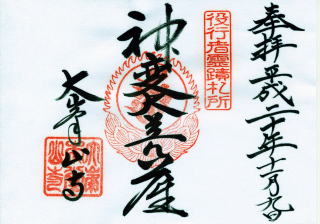 奉拝平成二十年十月九日
役行者霊蹟札所
神変大菩薩
大峯山寺